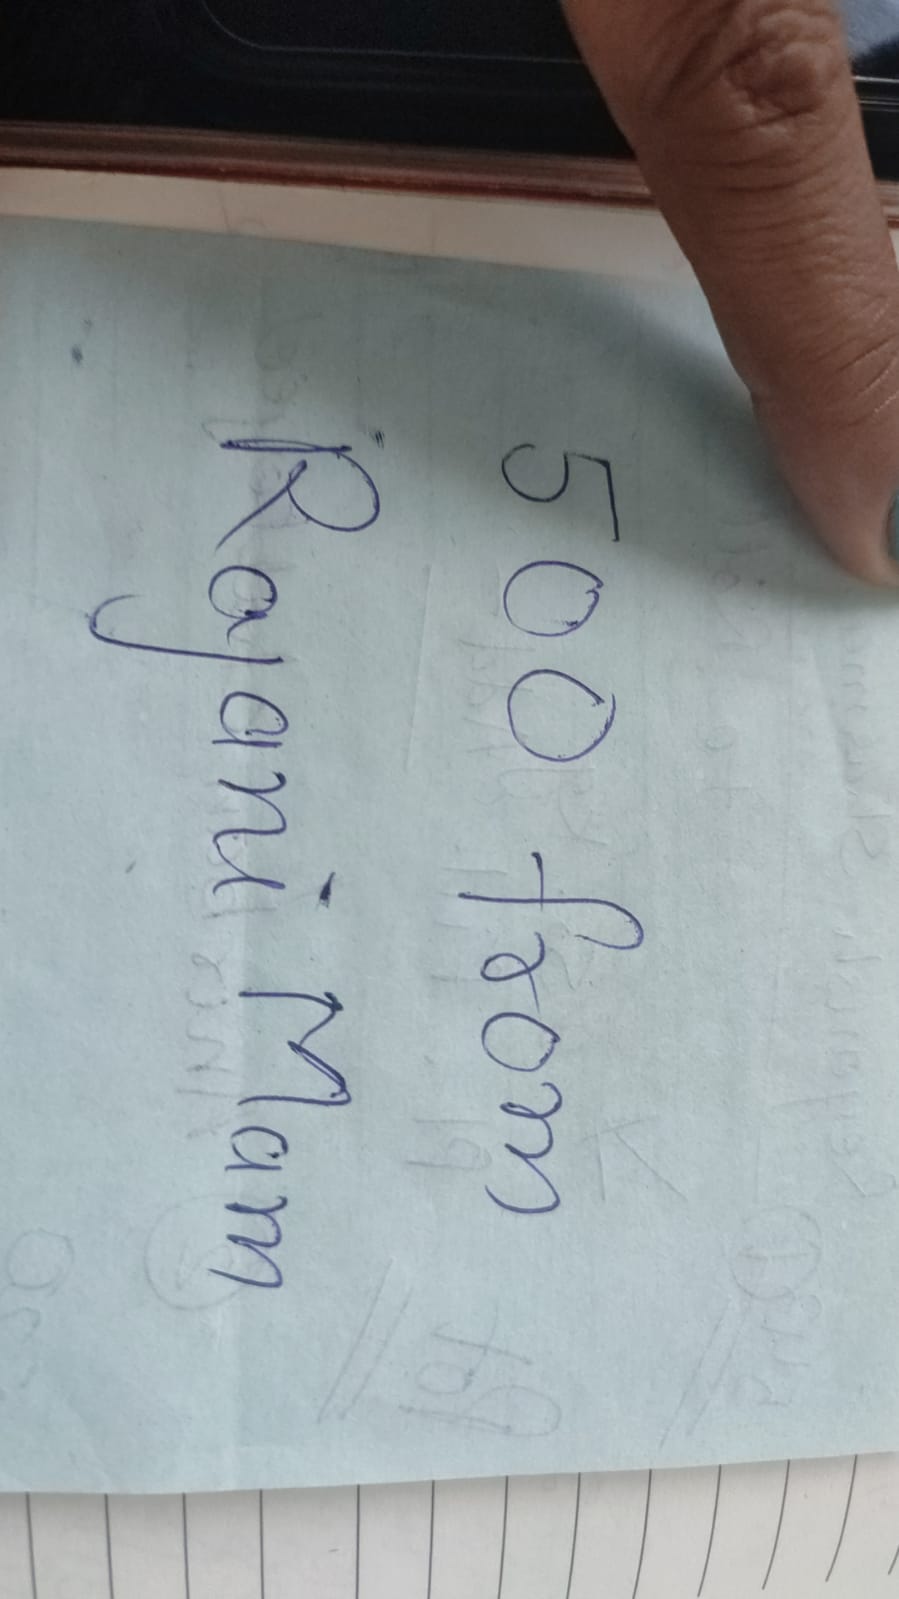 500 from
Rajani Mam